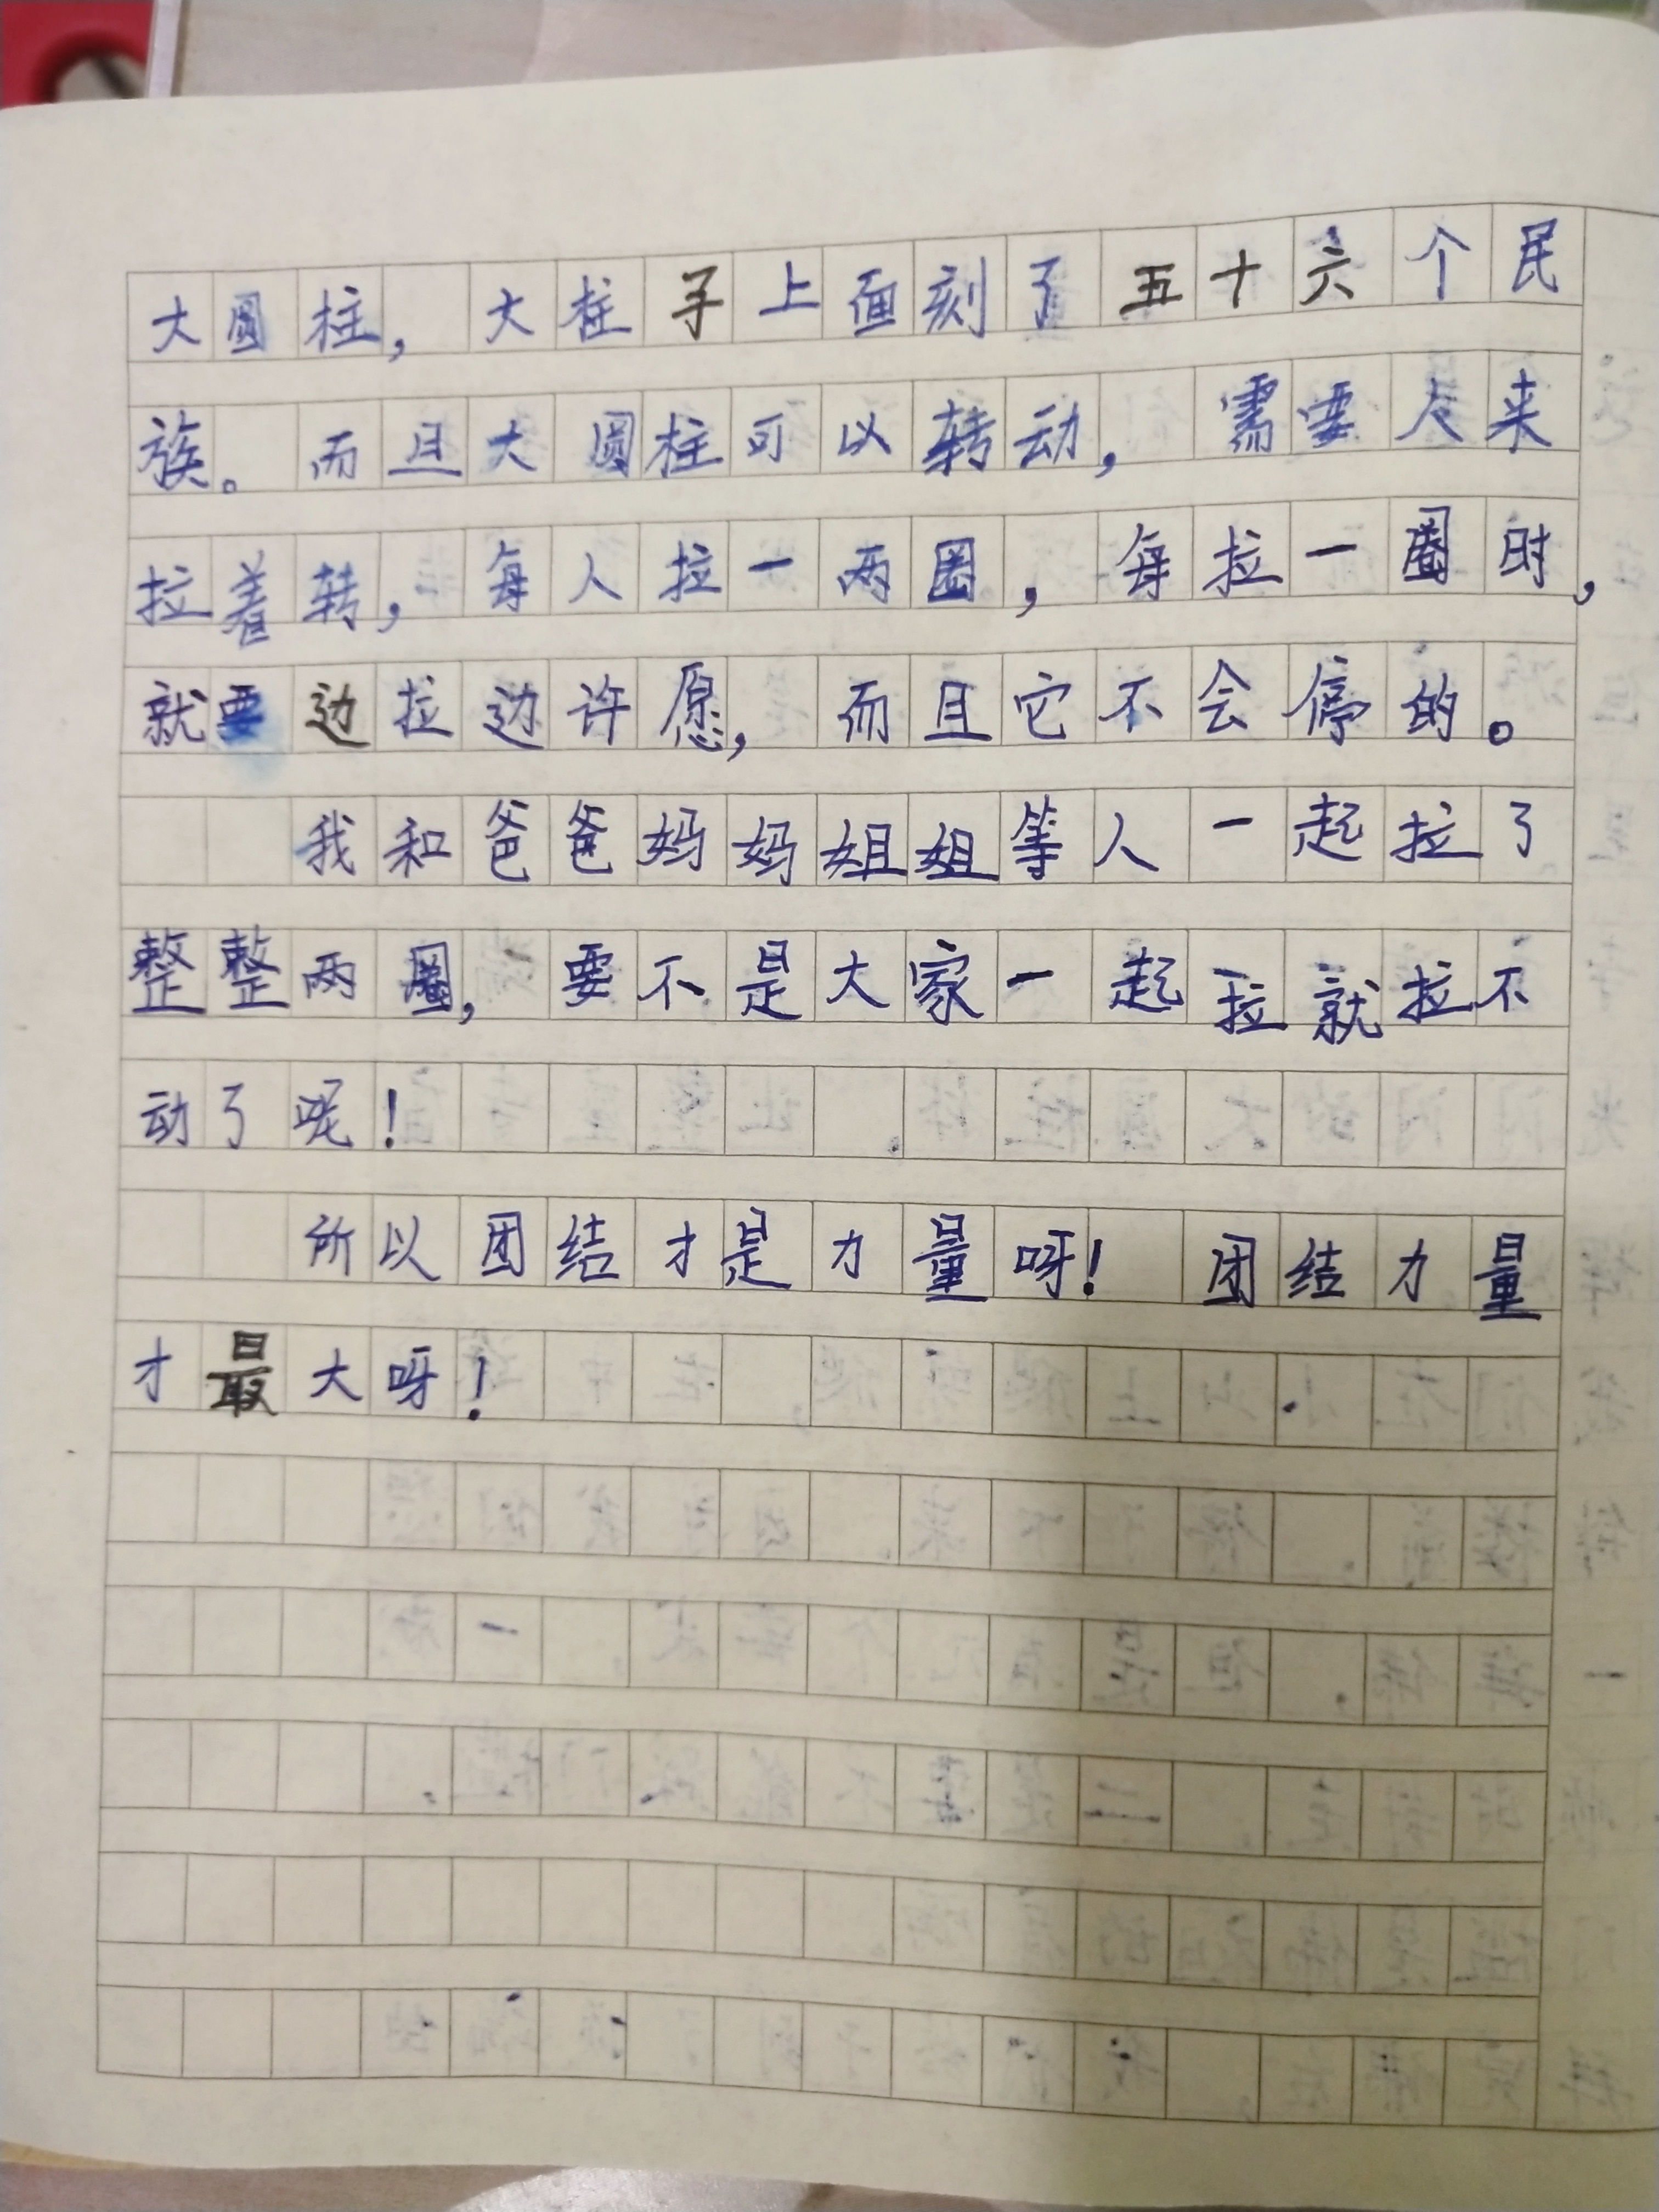 大圆柱，大柱子上面刻了五十六个民
族。而且大圆柱可以转动，需要人来
拉着转，每人拉一两圈，每拉一圈时，
就要边拉边许愿，而且它不会停的。
我和爸爸妈妈姐姐等人一起拉了
整整两圈，要不是大家一起拉就拉不
动了呢！
所以团结才是力量呀！团结力量
才最大呀！